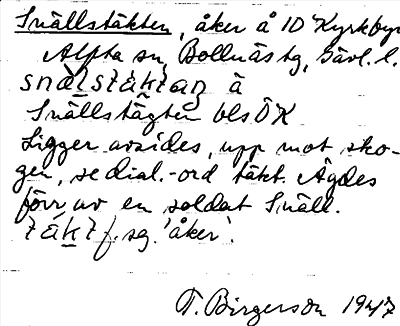 Snällstäkten, åker å 1D Kyrkbyn
Alfta sn, Bollnäs tg, Gävl. l.
snälstäktan å
Snällstägten bls ÖK
Ligger avsides, upp mot sko-
gen, se dial.-ord täkt. Ägdes
förr av en soldat Snäll.
täkt f. sg. 'åker'.
T. Birgerson 1947